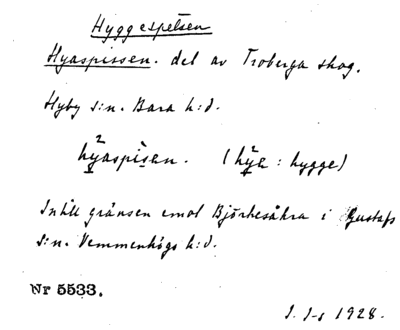 Hyggespetsen
Hyaspissen. del av Troberga skog.
Hyby s:n. Bara h:d.
hÿaspìsen. (hÿa : hygge)
Intill gränsen emot Björnesåkra i Gustafs
s:n. Vemmenhögs h:d.
Nr 5533.
1928.